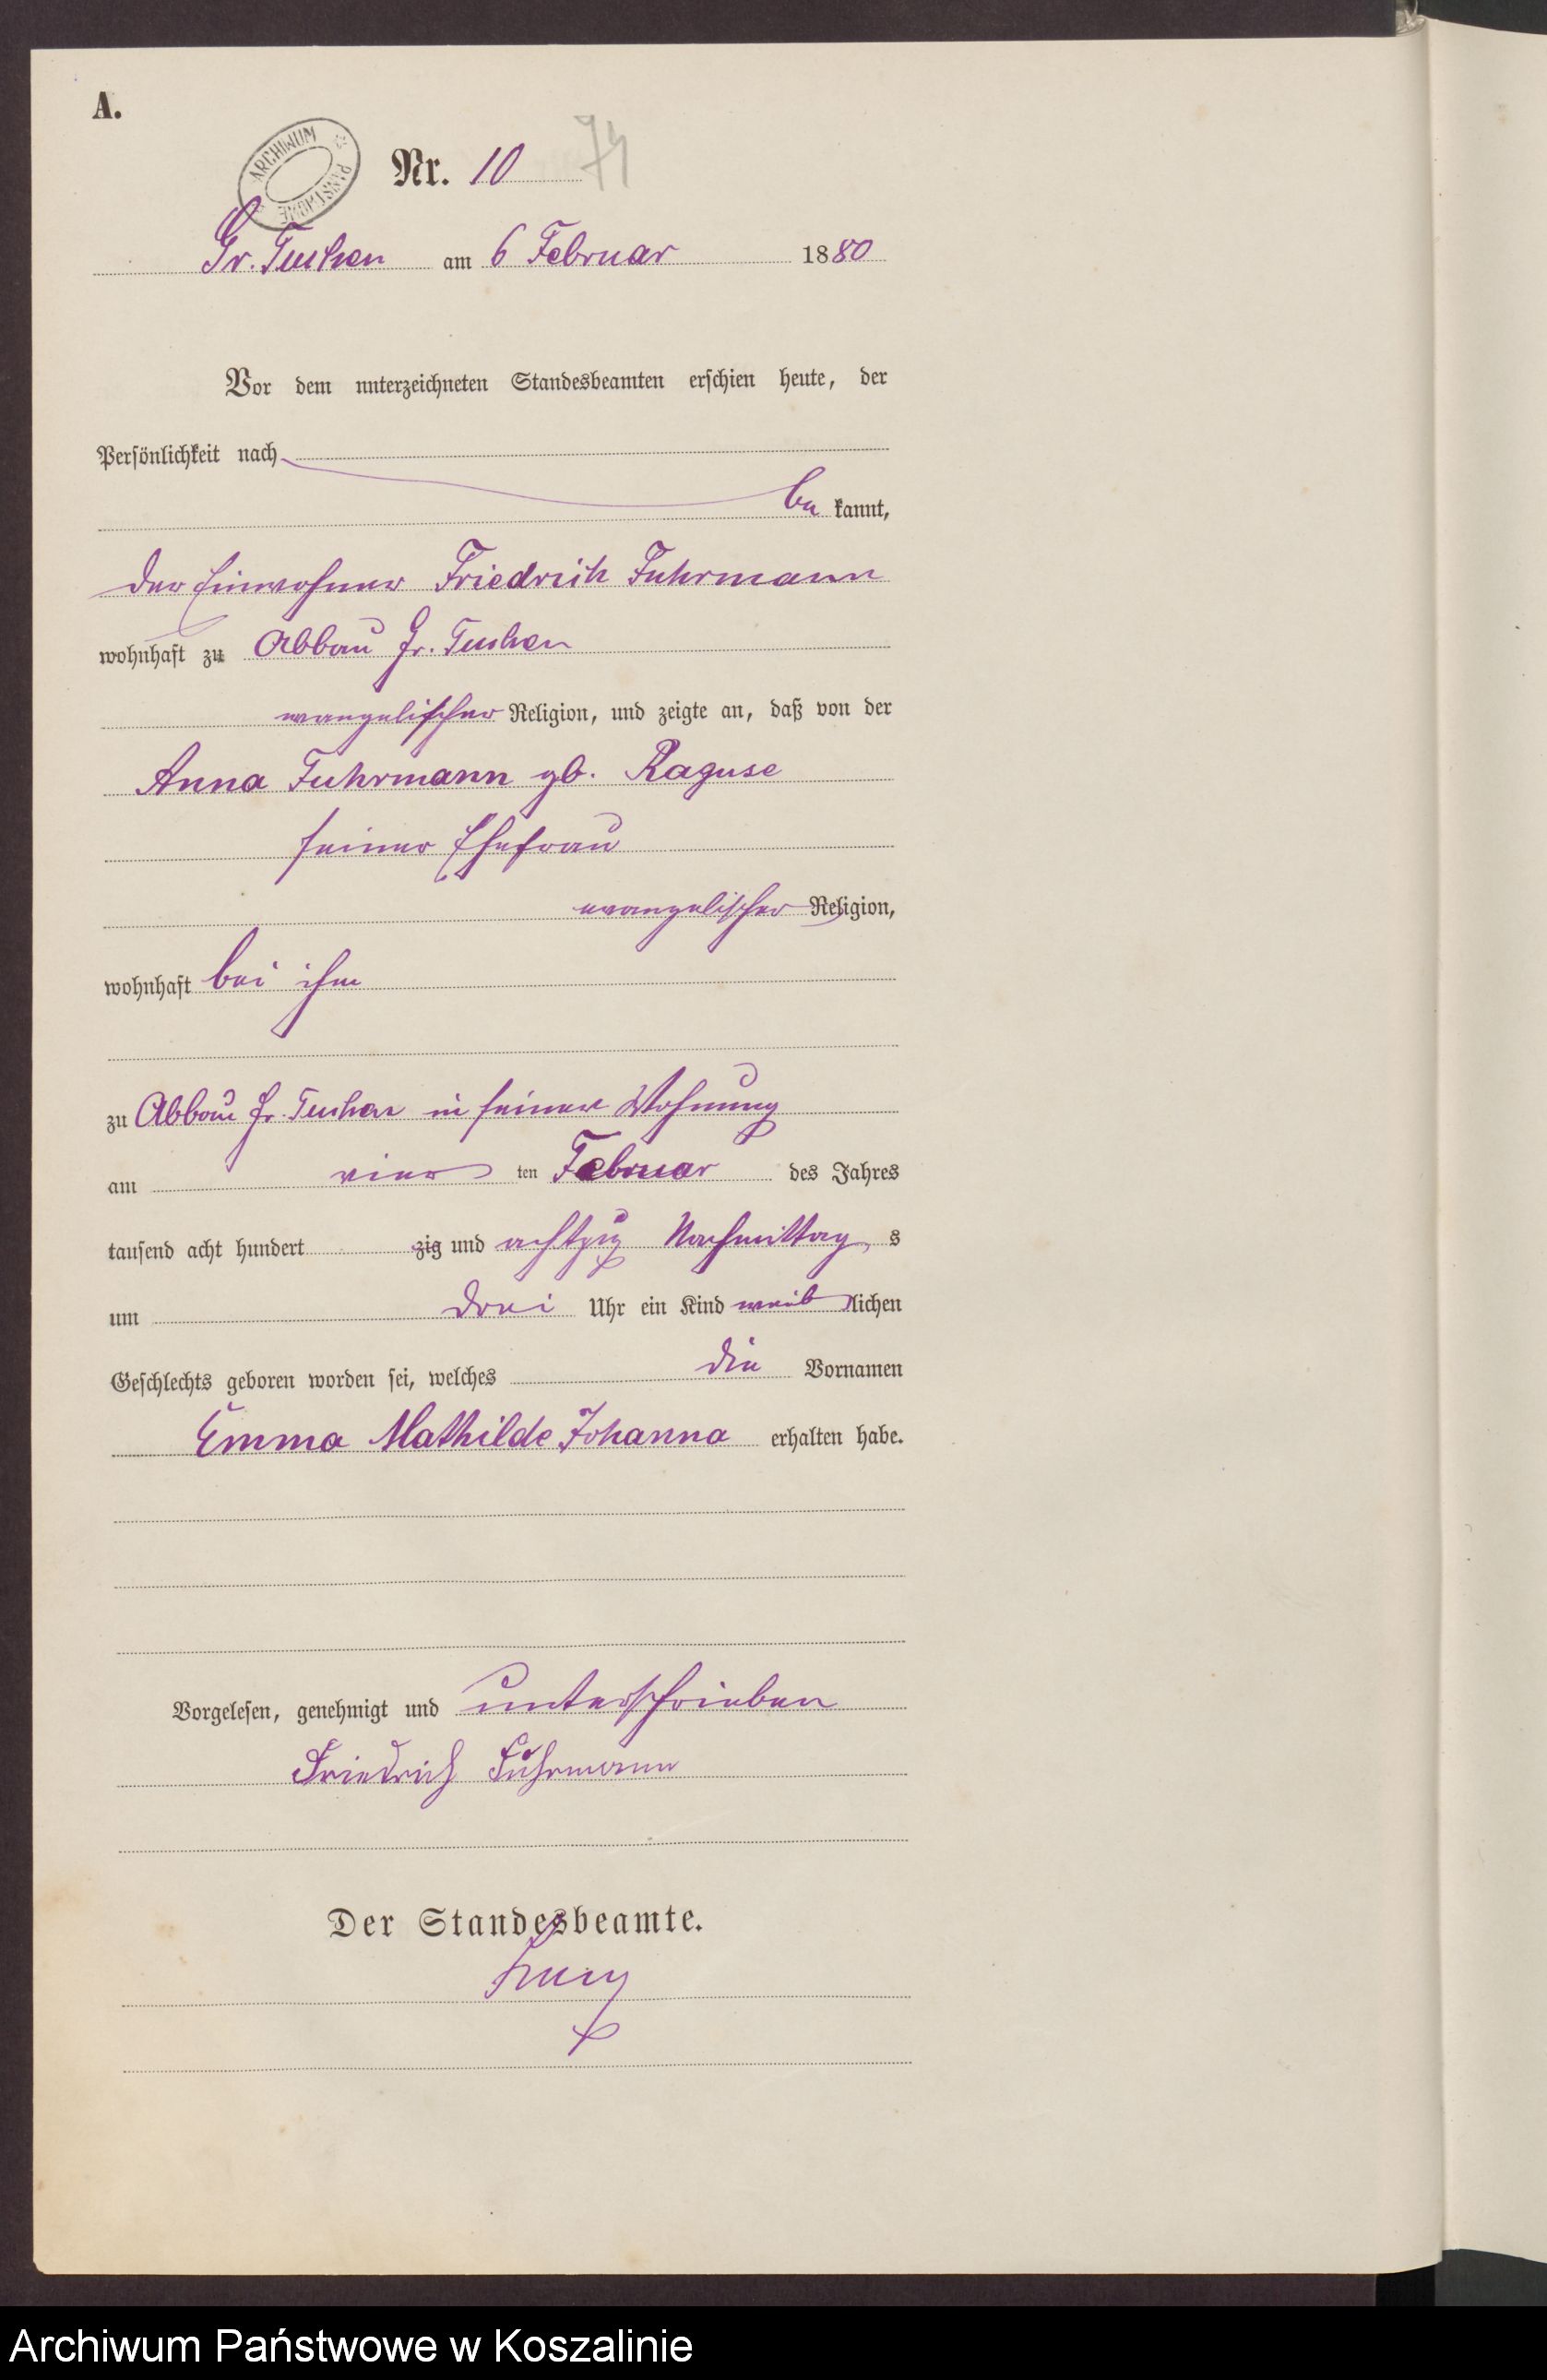 A.
ARCHIWUM PAŃSTWOWE
Nr. 10 74
Gr. Tuchen am 6 Februar 1880
Vor dem unterzeichneten Standesbeamten erschien heute, der
Persönlichkeit nach
be kannt,
der Einwohner Friedrich Fuhrmann
wohnhaft zu Abbau Gr. Tuchen
evangelischer Religion, und zeigte an, daß von der
Anna Fuhrmann gb. Raguse
seiner Ehefrau
evangelischer Religion,
wohnhaft bei ihm
zu Abbau Gr. Tuchen in seiner Wohnung
am vier ten Februar des Jahres
tausend acht hundert zig und achtzig Nachmittag s
um drei Uhr ein Kind weib lichen
Geschlechts geboren worden sei, welches die Vornamen
Emma Mathilde Johanna erhalten habe.
Vorgelesen, genehmigt und unterschrieben
Friedrich Fuhrmann
Der Standesbeamte.
Archiwum Państwowe w Koszalinie